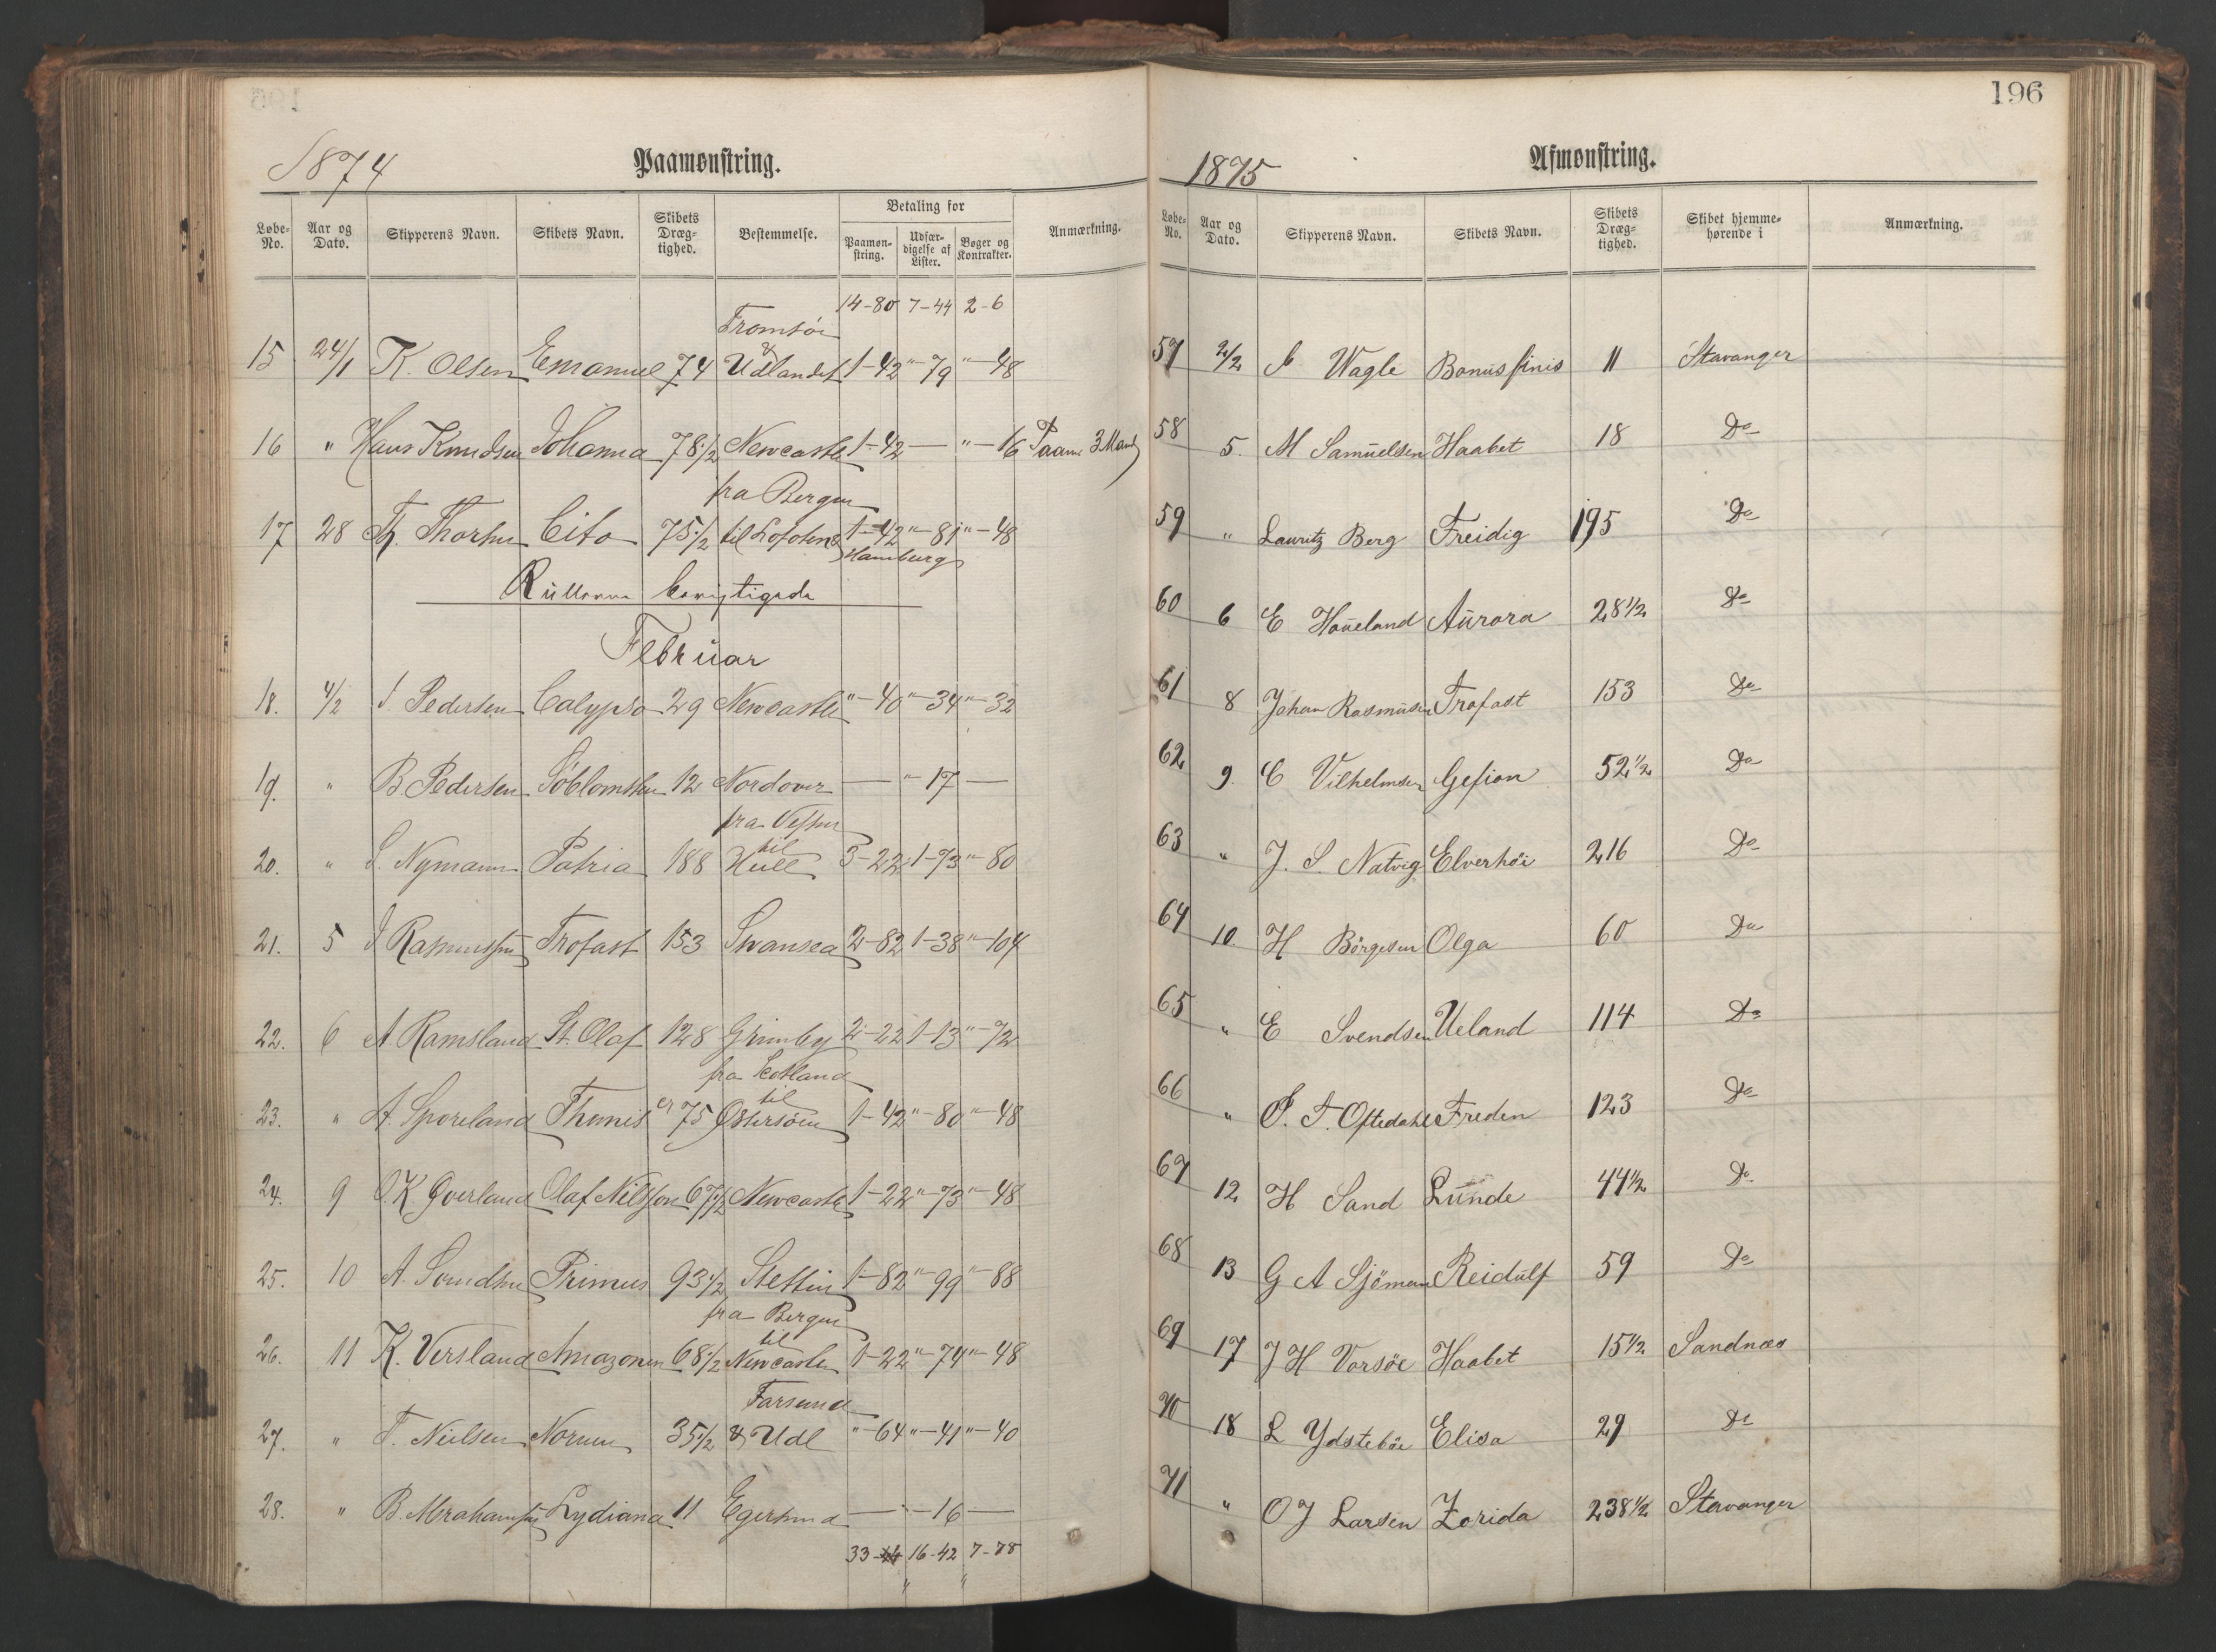 1874 Paamønstring.
Løbe-No. Aar og Dato. Skipperens Navn. Skibets Navn. Skibets Dræg-tighed. Bestemmelse. Betaling for Paamøn-string. Udfær-digelse af Lister. Bøger og Kontrakter. Anmærkning.
14-80 7-44 2-6
Tromsöe
15 24/1 K. Olsen Emanuel 74 & Udlandet 1-42 "-79 "-48
16 " Hans Knudsen Johanna 78 1/2 Newcastle 1-42 — "-16 Paam 3 Mand
fra Bergen
17 28 Th. Thorsen Cito 75 1/2 til Lofoten & 1-42 "-81 "-48
Hamburg
Rullerne berigtigede
Februar
18. 4/2 S. Pedersen Calypso 29 Newcastle "-40 "-34 "-32
19. " B. Pedersen Söblomsten 12 Nordover — "-17 —
fra Vesten
til
20. " S. Nymann Patria 188 Hull 3-22 1-73 "-80
21. 5 J Rasmussen Trofast 153 Swansea 2-82 1-38 "-104
22. 6 A Ramsland St. Olaf 128 Grimsby 2-22 1-13 "-72
fra Scotland
til
23. " A. Sporeland Themis 75 Østersöen 1-42 "-80 "-48
24. 9 O.K. Qverland Olaf Nilsson 67 1/2 Newcastle 1-22 "-73 "-48
25. 10 A. Primus 93 1/2 Stettin 1-82 "-99 "-88
fra Bergen
til
26. 11 K. Versland Amazonen 68 1/2 Newcastle 1-22 "-74 "-48
Farsund
27. " T. Nielsen Nornen 35 1/2 & Udl "-64 "-41 "-40
28. " B. Abrahamsen Lydiana 11 Egersund — "-16 —
33- 16-42 7-78
196
1875 Afmønstring.
Løbe-No. Aar og Dato. Skipperens Navn. Skibets Navn. Skibets Dræg-tighed. Skibet hjemme-hørende i Anmærkning.
57 2/2 Wagle Bonus finis 11 Stavanger
58 5. M Samuelsen Haabet 18 Do
59 " Lauritz Berg Freidig 195 Do
60 6 E Haueland Aurora 28 1/2 Do
61 8 Johan Rasmusen Trofast 153 Do
62 9. C Vilhelmsen Gefion 52 1/2 Do
63 " J. S. Natvig Elverhöi 216 Do
64 10. H Börgesen Olga 60 Do
65 " E Svendsen Ueland 114 Do
66 " T. Oftedahl Freden 123 Do
67 12 H Sand Lunde 44 1/2 Do
68 13 G A Sjöman Reidulf 59 Do
69 17 J H Vorsöe Haabet 15 1/2 Sandnæs
70 18 L Ydstebôe Elisa 29 Do
71 " O J Larsen Zorida 238 1/2 Stavanger